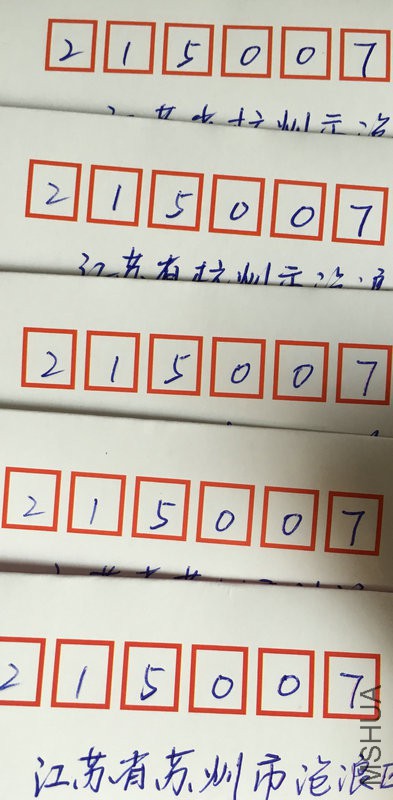 215007
江苏省杭州市沧
215007
江苏省杭州市沧浪
215007
215007
215007
江苏省苏州市沧浪区
MSHUA